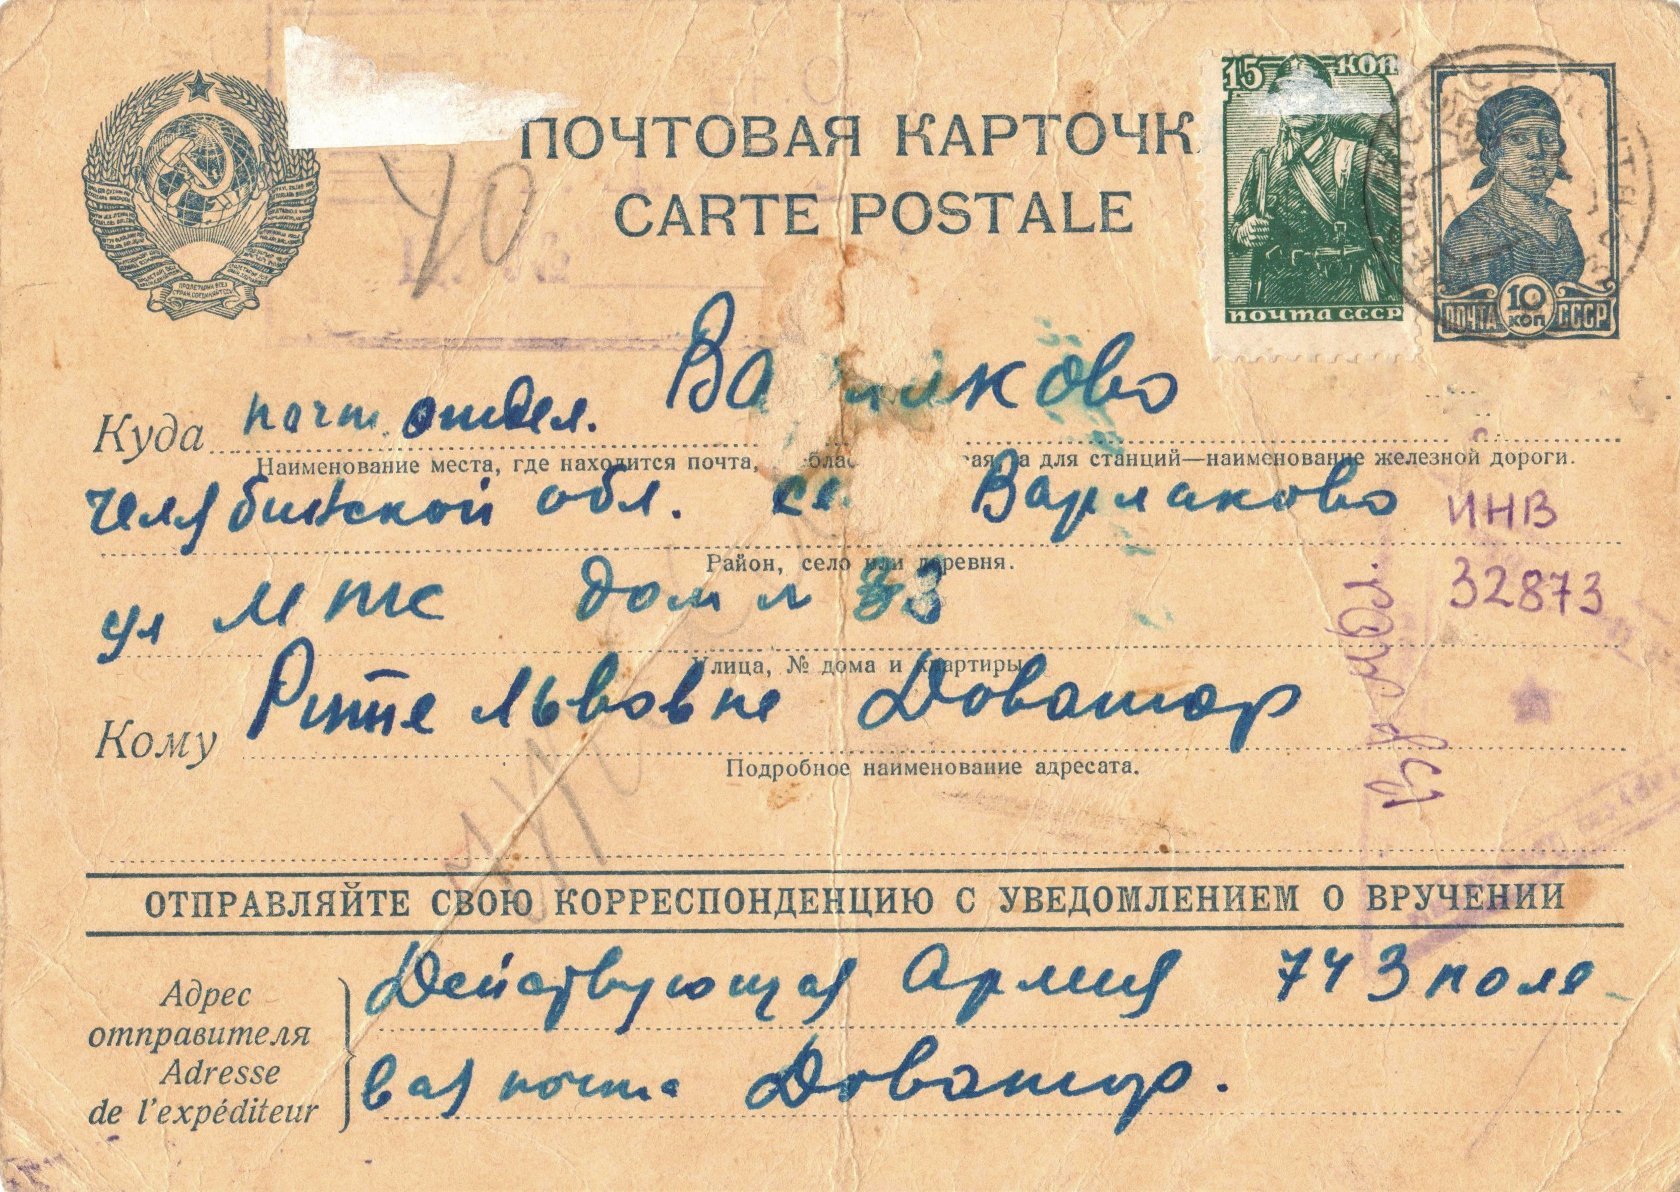 15 КОП
ПОЧТОВАЯ КАРТОЧК
CARTE POSTALE
40
ПОЧТА СССР
ПОЧТА 10 КОП СССР
Куда почт. отдел. Ва лаково
Наименование места, где находится почта, облас для станций—наименование железной дороги.
Челябинской обл. се Варлаково
ИНВ
32873
Район, село или деревня.
ул МТС дом № 33
Улица, № дома и квартиры
Кому Рите Львовне Доватор
Подробное наименование адресата.
ОТПРАВЛЯЙТЕ СВОЮ КОРРЕСПОНДЕНЦИЮ С УВЕДОМЛЕНИЕМ О ВРУЧЕНИИ
Адрес
отправителя
Adresse
de l'expéditeur
Действующая Армия 743 поле-
вая почта Доватор.